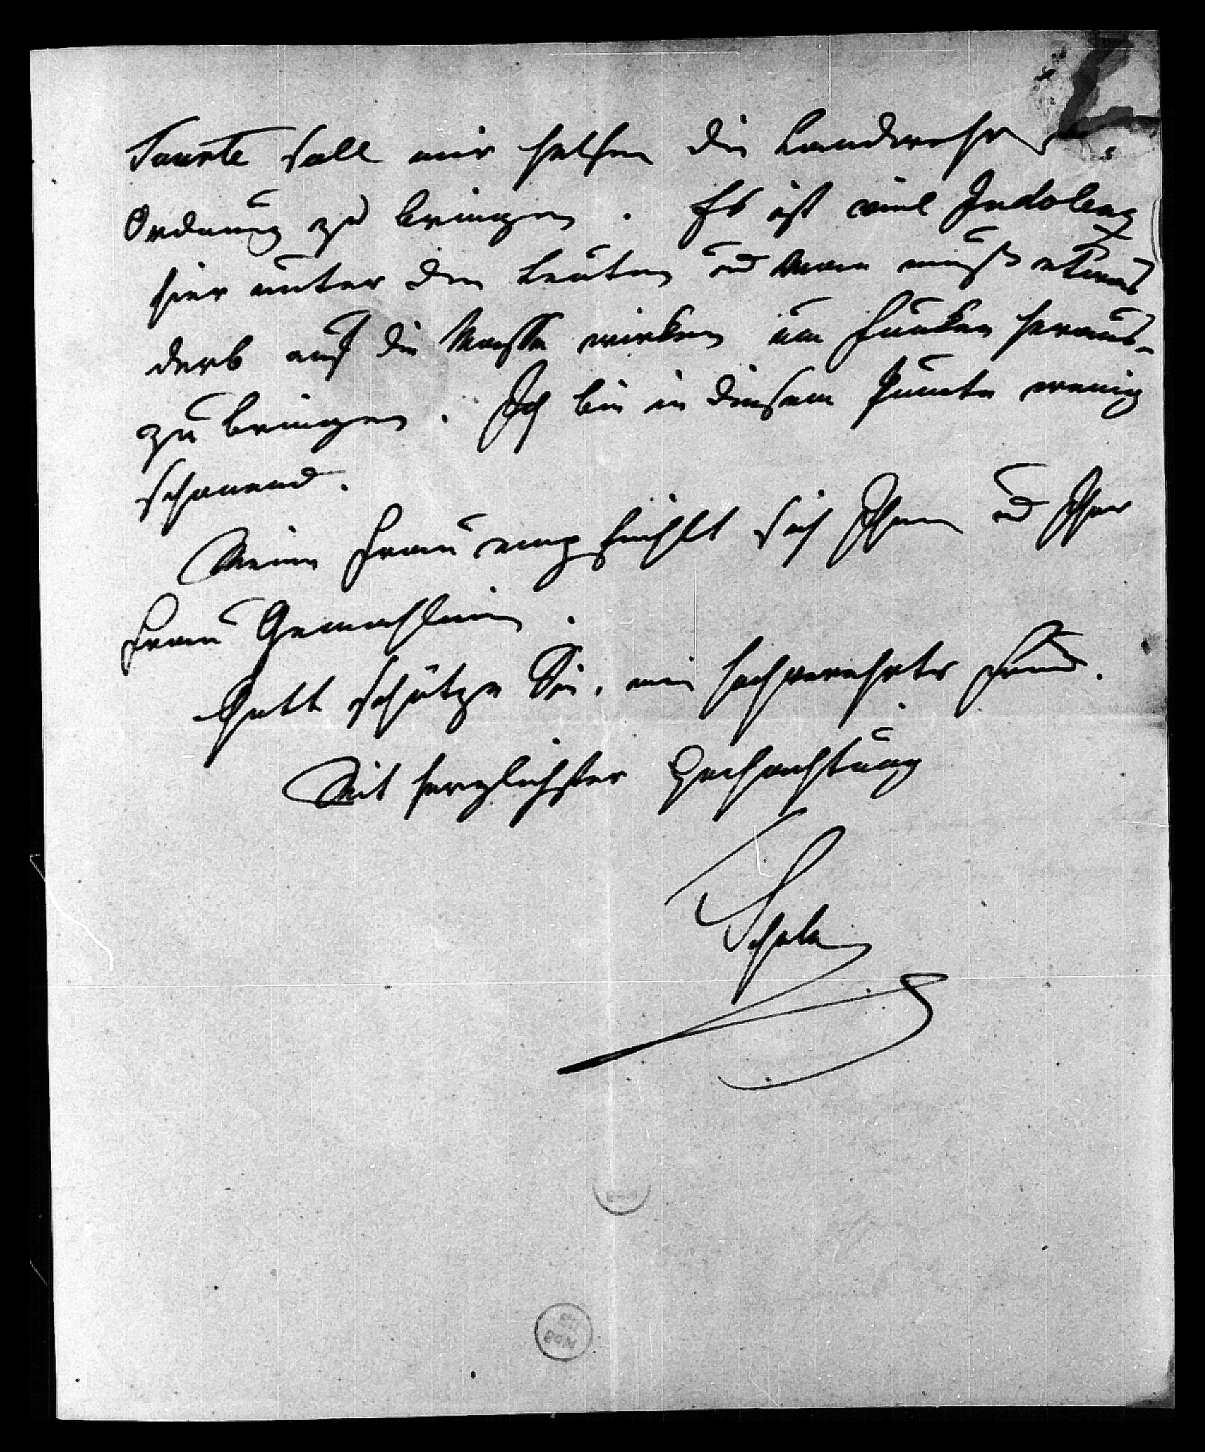 soll mir helfen die Landwehr
Ordnung zu bringen. Es ist viel Indolenz
hier unter den Leuten und man muß etwas
derb auf die Masse wirken um Funken heraus-
zubringen. Ich bin in diesem Punkte wenig
schonend.
Meine Frau empfiehlt sich Ihnen und Ihrer
Frau Gemahlinn.
Gott schütze Sie, mein hochverehrter Freund.
Mit herzlichster Hochachtung